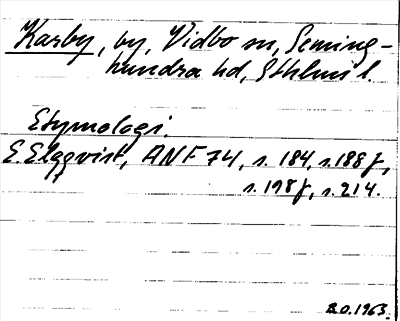 Karby, by, Vidbo sn, Seming-
hundra hd, Sthlms l.
Etymologi.
E. Elgqvist, ANF 74, s. 184, s. 188 f,
s. 198 f, s. 214.
B.O. 1963.